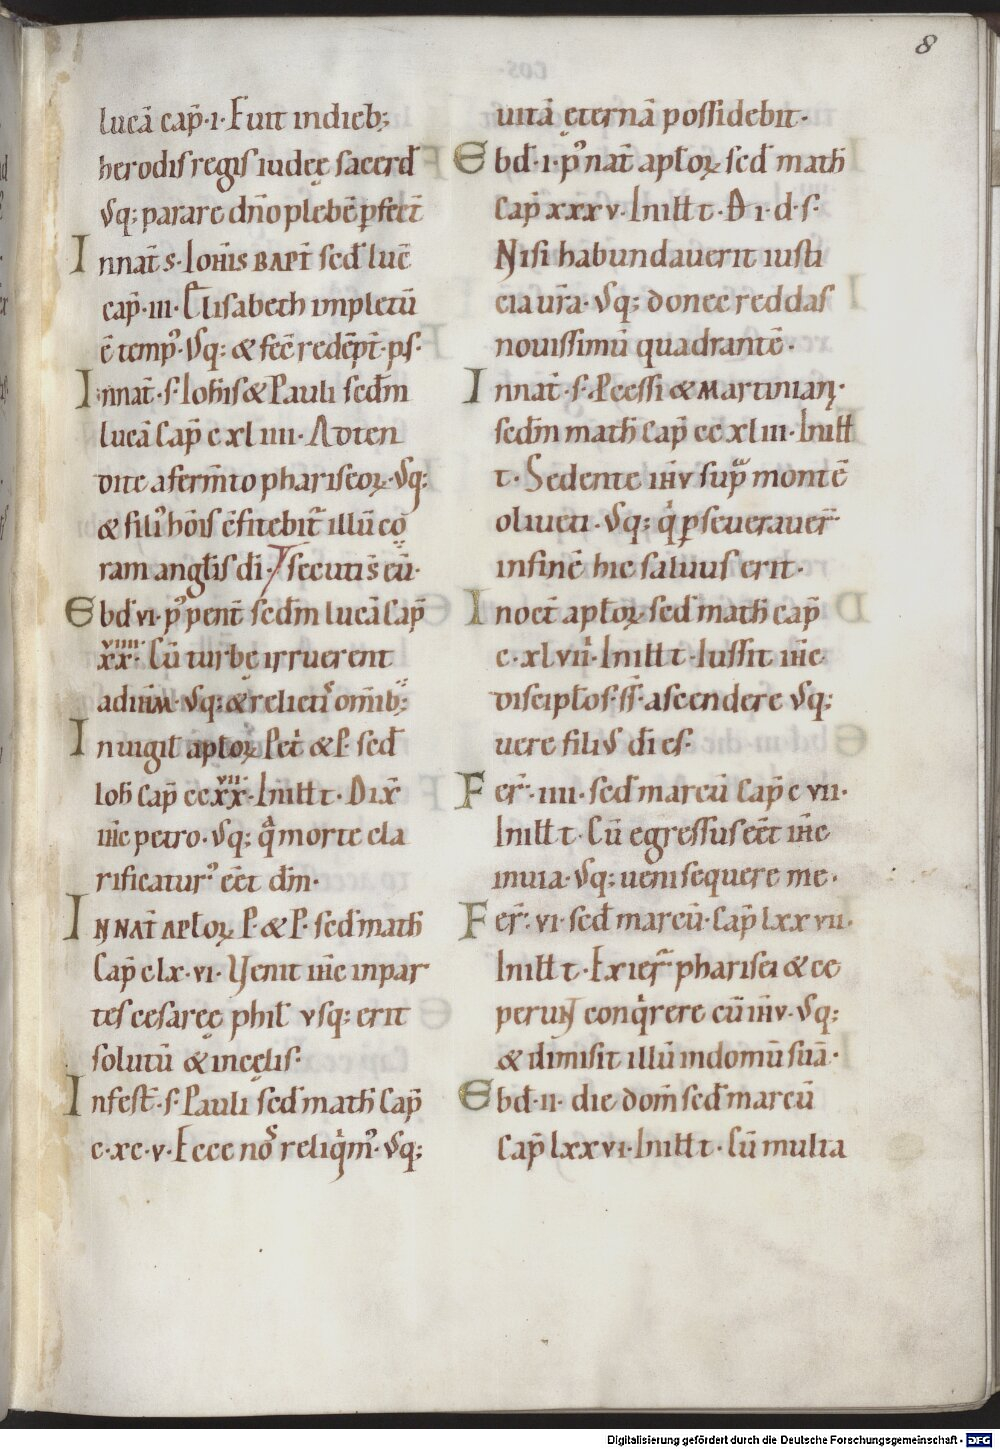 8
lucā cap̄·i·Fuit indieb;
herodis regis iudeę sacerđ
Vsq; parare dn̄o plebē ꝑfect̄
Innat̄ s· Ioh̄is bapt̄ sed̄ luc̄
cap̄·iii· Elisabeth impletū
ē temp᾽· Vsq; & fec̄ redēpt̄·ps·
Innat̄·s·Ioh̄is & Pauli sed̄m
lucā Cap̄ c xl iiii· Adten
dite a ferm̄to phariseoꝝ·Vsq;
& fili᾽ hōis c̄fitebit᾽ illū co
ram angl̄is dī· secutis cū·
Ebđ vi·p᾽ pent̄ sed̄m lucā Cap̄
xx·viiii· Cū turbę irruerent
ad ih̄m·Vsq; & relicti᾽ om̄ib;
In uigil̄ apl̄oꝝ Pet̄ & P· seđ
Ioh̄ cap̄ ccxx·vii·Initł t·Dix̄
ih̄c petro·Vsq; q̄ morte cla
rificatur᾽ eēt dm̄·
In nat̄ apl̄oꝝ P· & P· sed̄ math̄
Cap̄ clx·vi·Venit ih̄c in par
tes cesareę phil̄ vsq; erit
solutū & in cęlis·
In fest̄·s·Pauli sed̄ math̄ Cap̄
c·xc·v·Ecce nos reliq̇m᾽·Vsq;
uitā ęternā possidebit·
Ebđ·i·p᾽ nat̄ apl̄oꝝ seđ math̄
Cap̄ xxxv·Initł t·D i·d·s·
Nisi habundauerit iusti
cia ur̄a·Vsq; donec reddas
nouissimū quadrantē·
In nat̄·s·Pcessi & Martiniani·
sed̄m math̄ Cap̄ cc xliii·Initł
t·Sedente ih̄v sup̄ montē
oliueti·Vsq; q̇ ꝑseuerauer̄
in finē hic saluus erit·
In oct̄ apl̄oꝝ seđ math̄ Cap̄
c·xlvii·Initł t·Iussit ih̄c
discipl̄os·s̄s·ascendere Vsq;
vere filiVs dī es·
Fer̄·iiii·seđ marcū Cap̄ c vii·
Initł t·Cū egressus eēt ih̄c
in uia·Vsq; ueni sequere me·
Fer̄·vi·seđ marcū·Cap̄ lxxvii·
Initł t·Exier̄ pharisei & cę
perunt conq̇rere cū ih̄v·Vsq;
& dimisit illū in domū suā·
Ebđ·ii·die dom̄ seđ marcū
Cap̄ lxxvi·Initł t·Cū multa
Digitalisierung gefördert durch die Deutsche Forschungsgemeinschaft - DFG